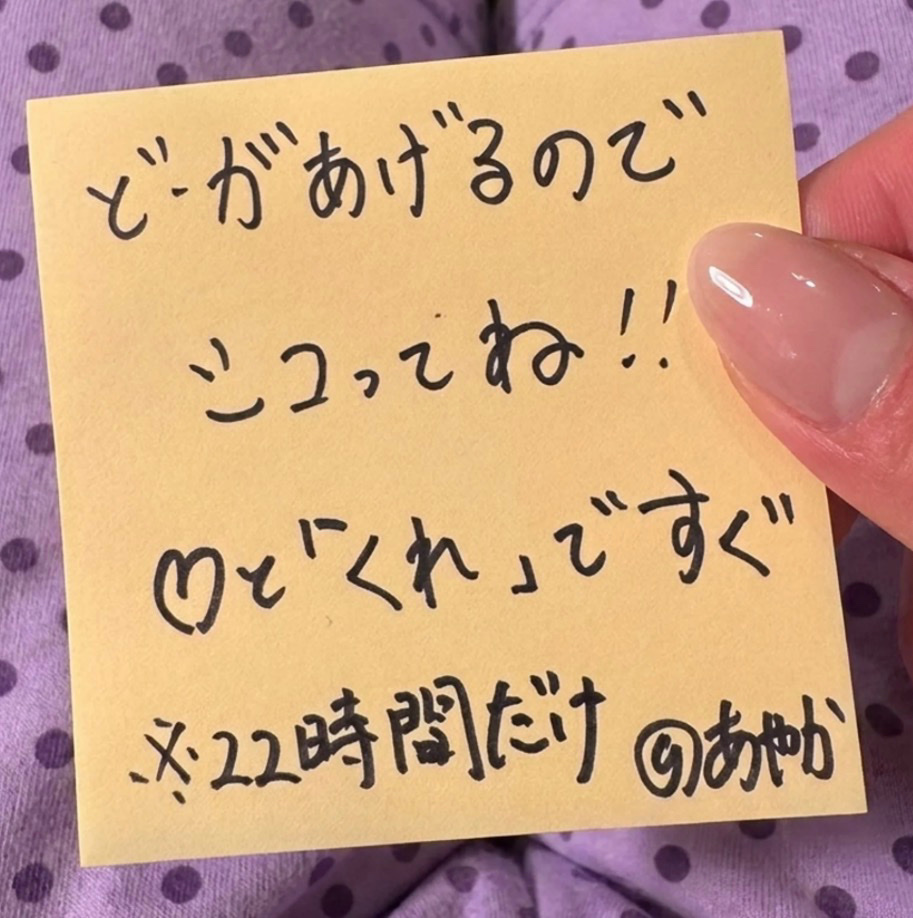 どーがあげるので
シコってね!!
♡と「くれ」ですぐ
※22時間だけ @あやか